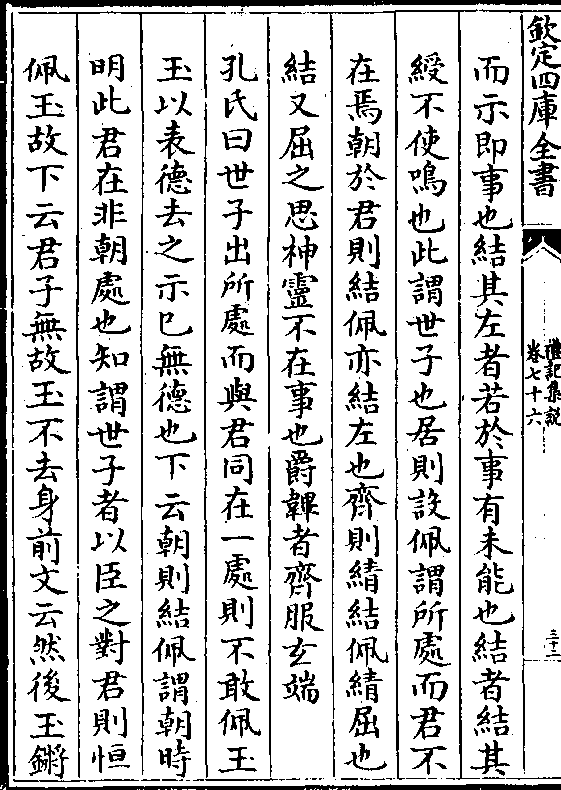 欽定四庫全書
禮記集説
卷七十六
三十二
而示即事也結其左者若於事有未能也結者結其
綬不使鳴也此謂世子也居則設佩謂所處而君不
在焉朝於君則結佩亦結左也齊則綪結佩綪屈也
結又屈之思神靈不在事也爵韠者齊服玄端
孔氏曰世子出所處而與君同在一處則不敢佩玉
玉以表德去之示已無德也下云朝則結佩謂朝時
明此君在非朝處也知謂世子者以臣之對君則恒
佩玉故下云君子無故玉不去身前文云然後玉鏘